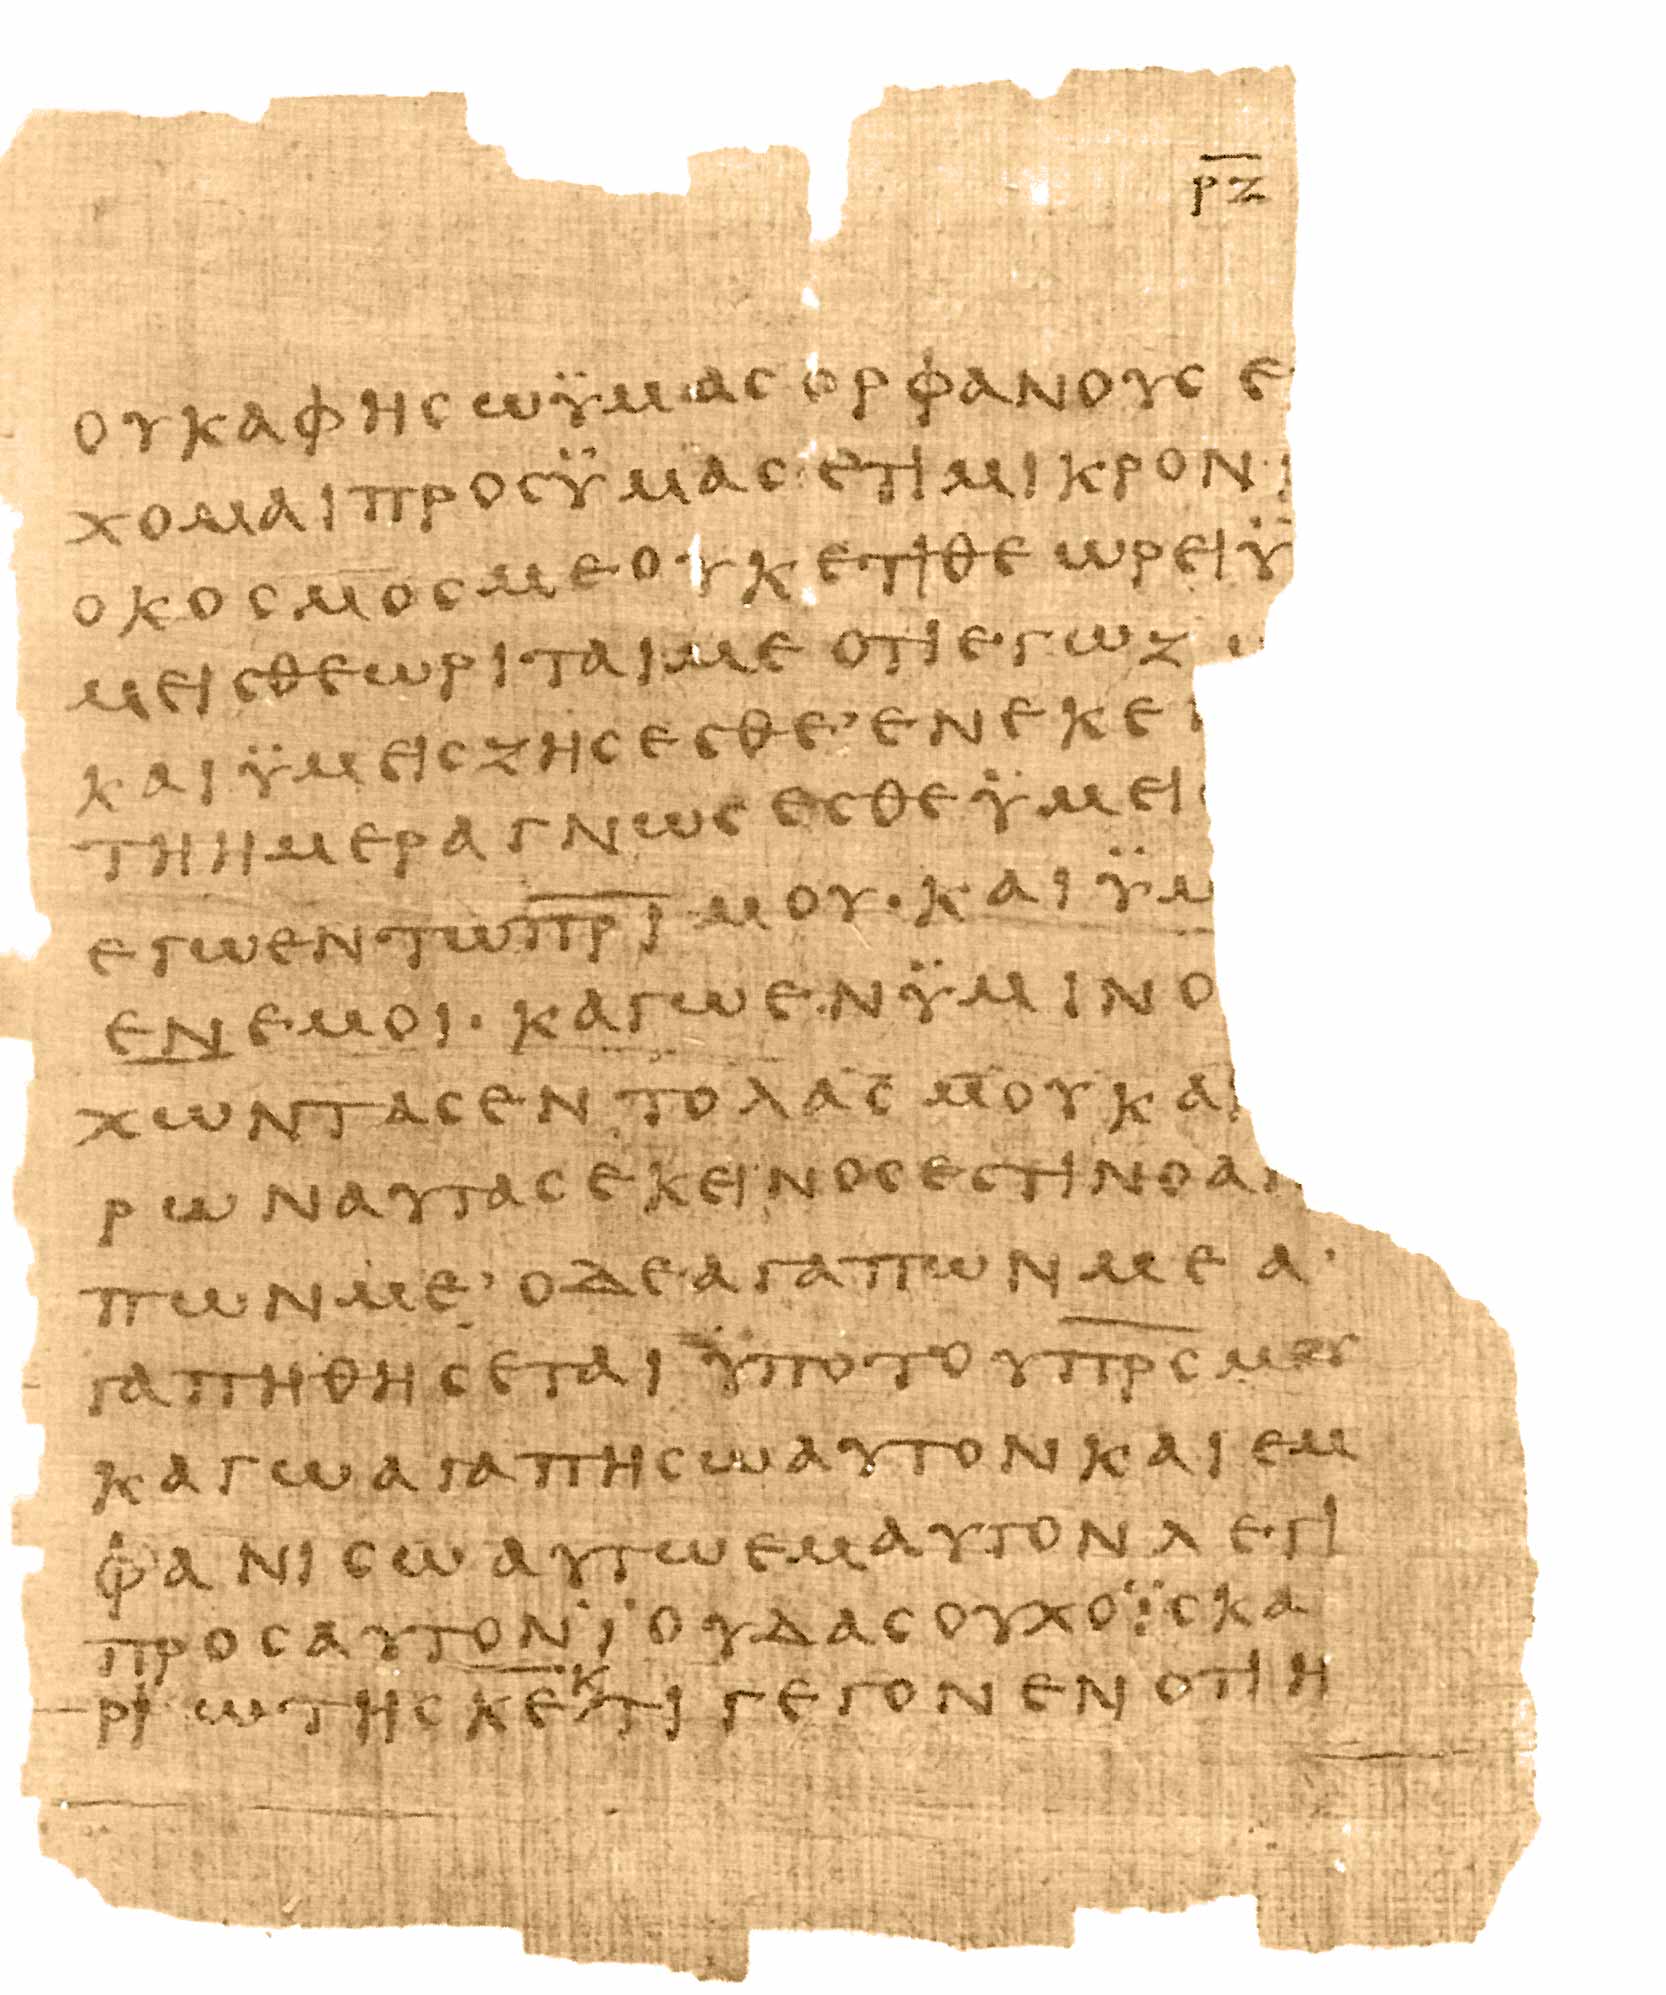 ρ̅ζ̅
ουκαφησωϋμασορφανουσ ε
χομαιπροσϋμασετιμικρον
οκοσμοσμεουκετιθεωρειϋ
μεισθεωριταιμεοτιεγωζ
καιϋμεισζησεσθε·ενεκε
τηημεραγνωσεσθεϋμει
εγωεντωπ̅ρ̅ι̅μου·καιϋμ
ενεμοι·καγωενϋμινο
χωντασεντολασμουκαι
ρωναυτασεκεινοσεστινοαγ
πωνμε·οδεαγαπωνμεα·
γαπηθησεταιϋποτουπ̅ρ̅σ̅μου
καγωαγαπησωαυτονκαιεμ
φανισωαυτωεμαυτονλεγι
προσαυτονιουδασουχοϊσκα
ριωτησκ̅ε̅κτιγεγονενοτιη